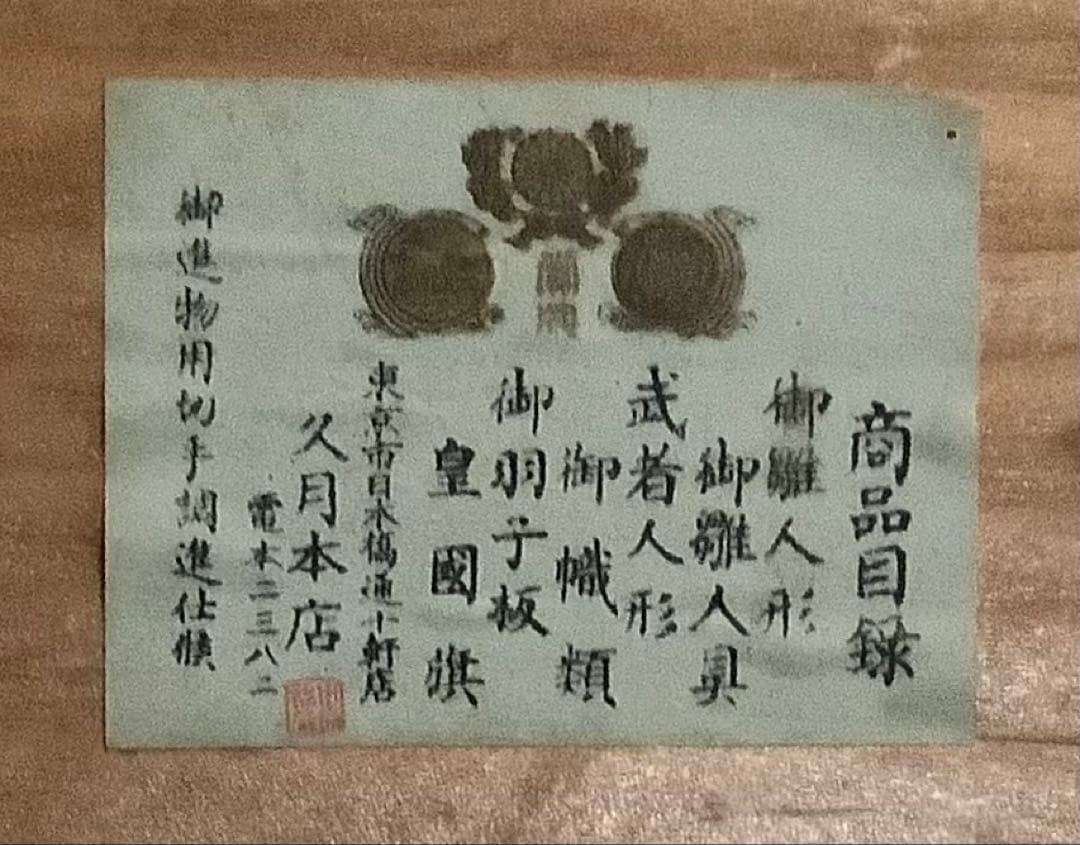 商品目録
御雛人形
御雛人具
武者人形
御幟類
御羽子板
皇國旗
東京市日本橋通十軒店
久月本店
電本二三八二
御進物用切手調進仕候